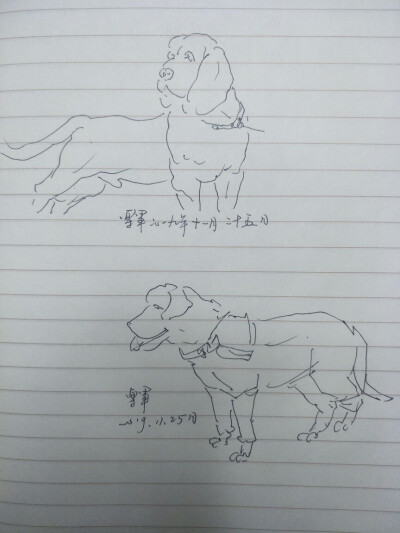 軍 二〇一九年十一月二十五日
軍
2019.11.25日